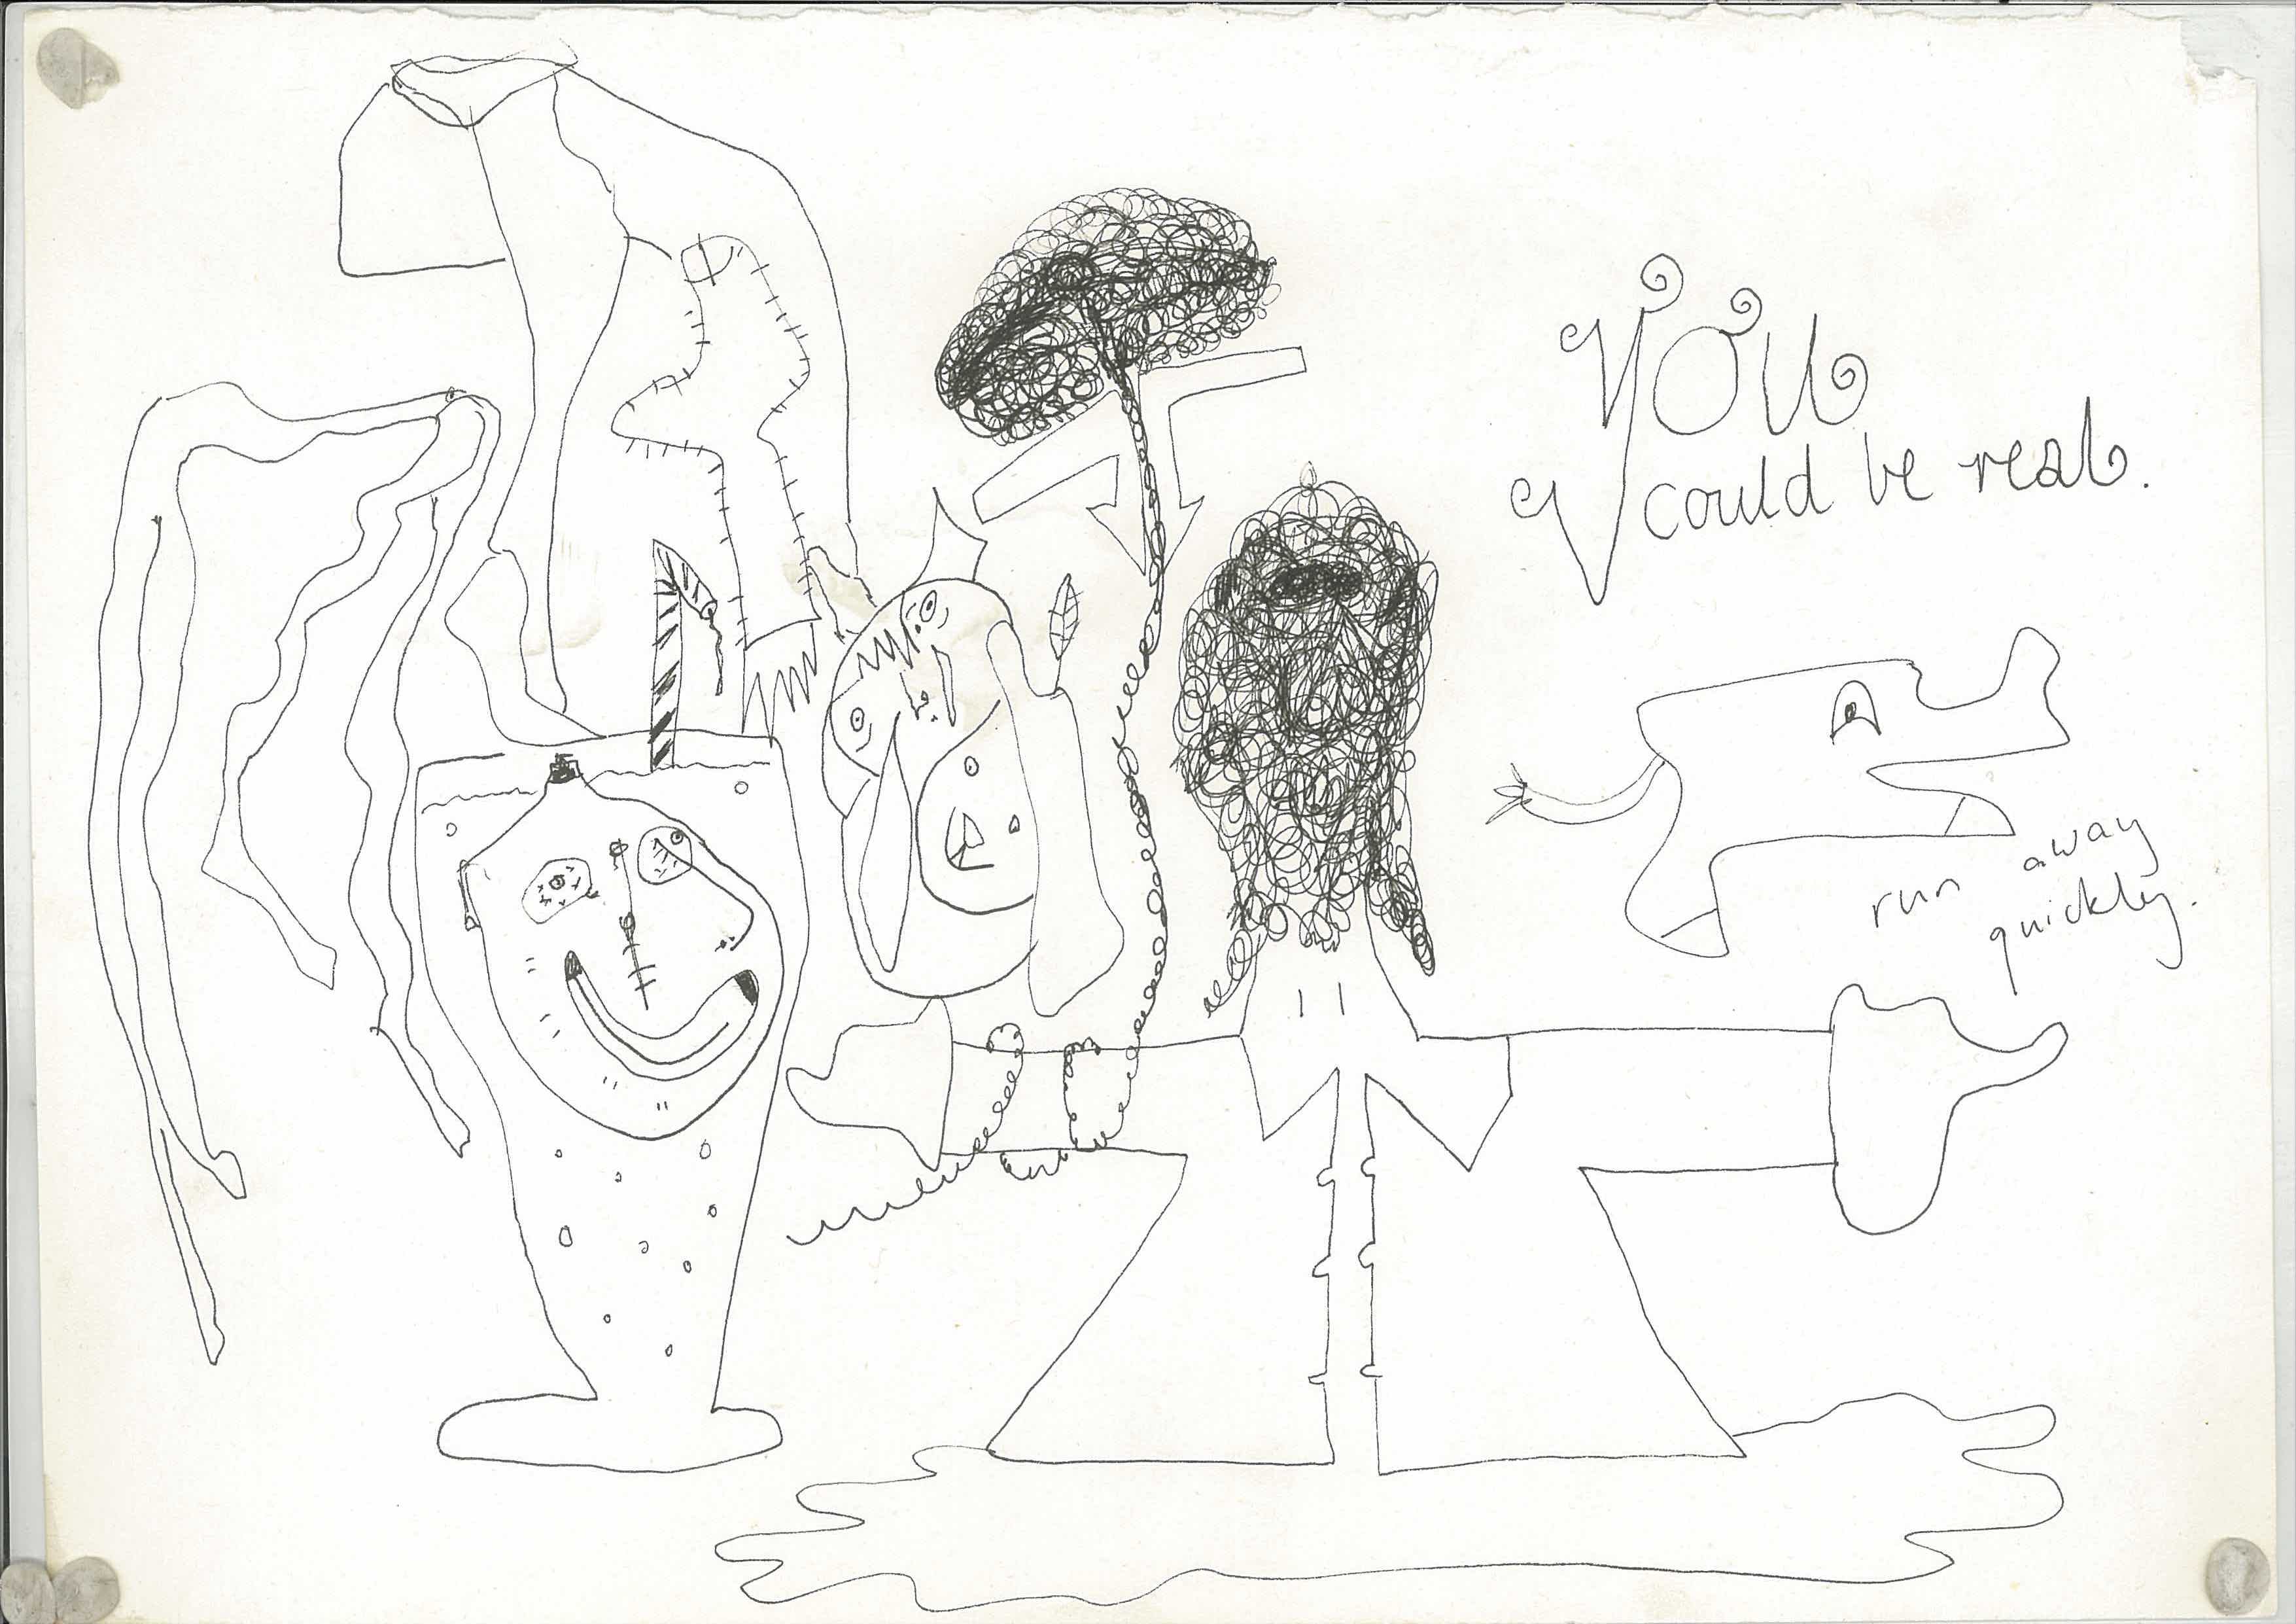 you
could be real.
run away
quickly.